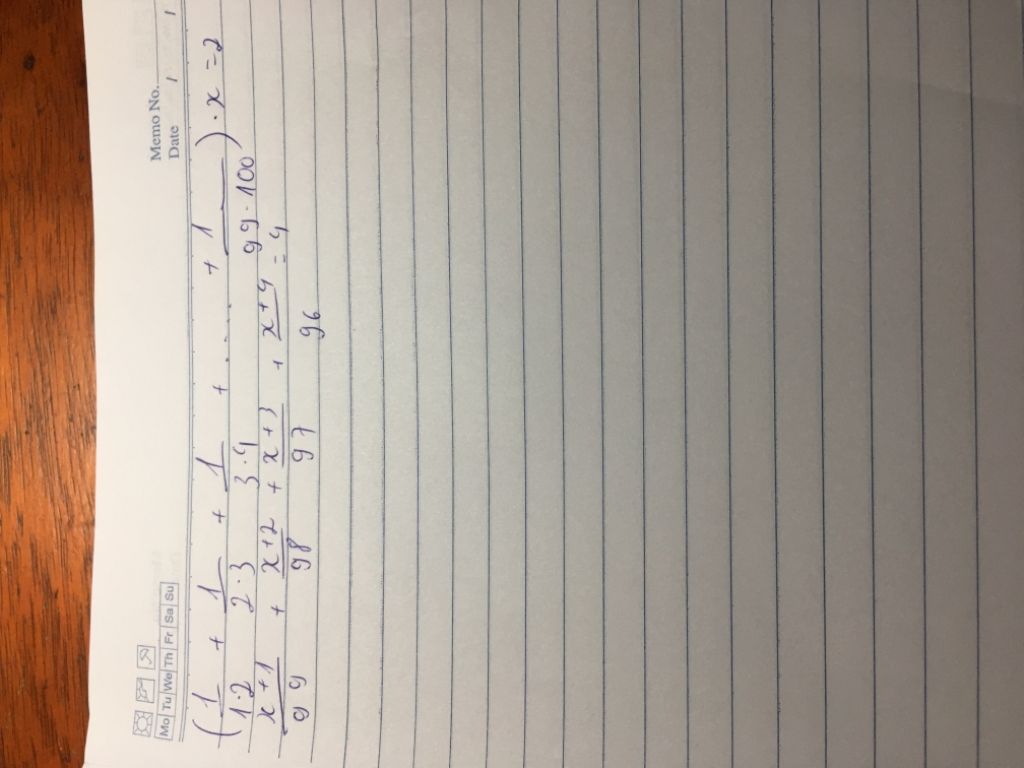 Memo No.
Mo Tu We Th Fr Sa Su
Date / /
( 1/1·2 + 1/2·3 + 1/3·4 + ..... + 1/99·100 ) · x = 2
x+1/99 + x+2/98 + x+3/97 + x+4/96 = 4